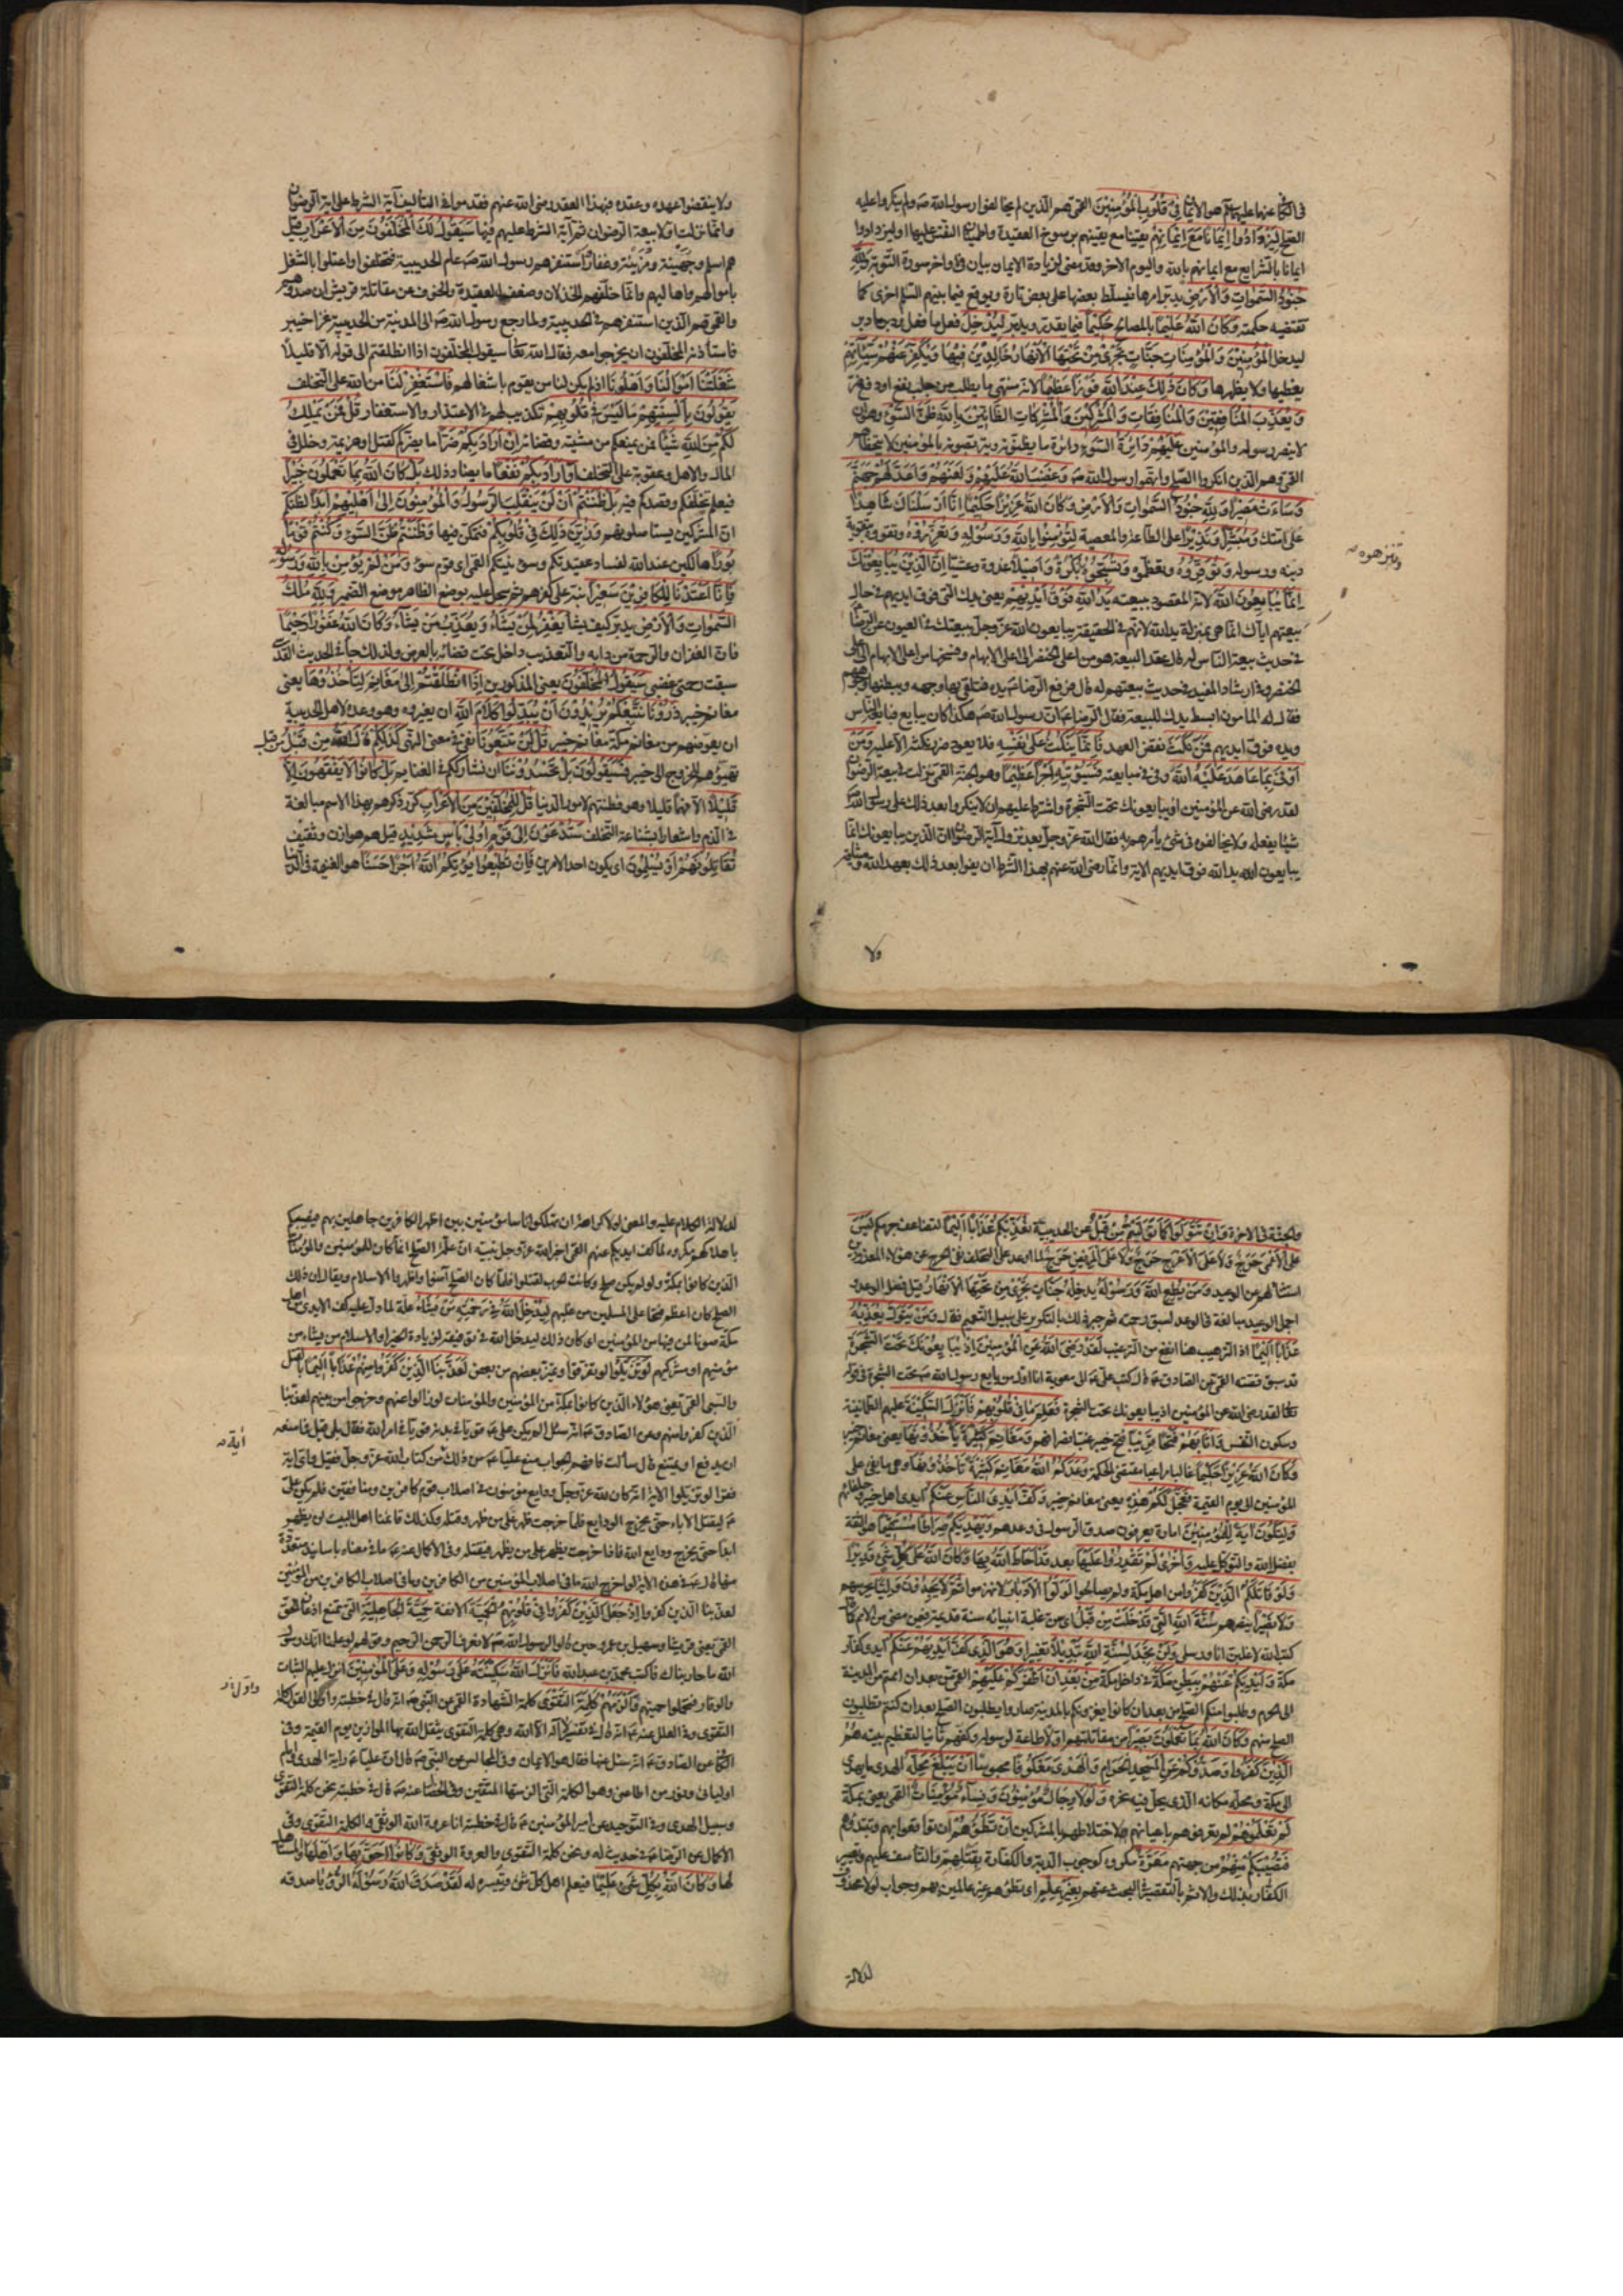 في الكافي عنهما عليهما السلم هو الايمان في قلوب المؤمنين القمي هم الذين لم يخالفوا رسول الله صه ولم ينكروا عليه
الصلح ليزدادوا ايمانا مع ايمانهم يقينا مع يقينهم برسوخ العقيدة واطمينان النفس عليها او ليزدادوا
ايمانا بالشرايع مع ايمانهم بالله واليوم الاخر وقد مضى لزيادة الايمان بيان في اواخر سورة التوبة ولله
جنود السموات والارض يدبر امرها فيسلط بعضها على بعض تارة ويوقع فيما بينهم السلم اخرى كما
تقتضيه حكمته وكان الله عليما بالمصالح حكيما فيما يقدر ويدبر ليدخل فعل ما فعل ودبر ما دبر
ليدخل المؤمنين والمؤمنات جنات تجري من تحتها الانهار خالدين فيها ويكفر عنهم سيئاتهم
يغطيها ولا يظهرها وكان ذلك عند الله فوزا عظيما لانه منتهى ما يطلب من جلب نفع او دفع ضر
ويعذب المنافقين والمنافقات والمشركين والمشركات الظانين بالله ظن السوء وهو ان
لا ينصر رسوله والمؤمنين عليهم دائرة السوء دائرة ما يظنونه ويتربصونه بالمؤمنين لا يتخطاهم
القمي وهم الذين انكروا الصلح واتهموا رسول الله صه وغضب الله عليهم ولعنهم واعد لهم جهنم
وساءت مصيرا ولله جنود السموات والارض وكان الله عزيزا حكيما انا ارسلناك شاهدا
على امتك ومبشرا ونذيرا على الطاعة والمعصية لتؤمنوا بالله ورسوله وتعزروه وتقووه بتقوية
دينه ورسوله وتوقروه وتعظموه وتسبحوه بكرة واصيلا غدوة وعشيا ان الذين يبايعونك
وتنزهوه صه
انما يبايعون الله لانه المقصود ببيعته يد الله فوق ايديهم يعني يدك التي فوق ايديهم في حال
بيعتهم اياك انما هي بمنزلة يد الله لانهم في الحقيقة يبايعون الله عز وجل ببيعتك في العيون عن الرضا
في حديث بيعة الناس له قال عقد البيعة هو من اعلى الخنصر الى اعلى الابهام وفسخها من اعلى الابهام الى اعلى
الخنصر وفي ارشاد المفيد في حديث بيعتهم له قال فرفع الرضا عم يده فتلقى بها وجهه وببطنها وجوههم
فقال له المامون ابسط يدك للبيعة فقال الرضا عم ان رسول الله صه هكذا كان يبايع فبايعه الناس
ويده فوق ايديهم فمن نكث نقض العهد فانما ينكث على نفسه فلا يعود ضرر نكثه الا عليه ومن
اوفى بما عاهد عليه الله وفى في مبايعته فسيؤتيه اجرا عظيما وهو الجنة القمي نزلت في بيعة الرضوان
لقد رضي الله عن المؤمنين اذ يبايعونك تحت الشجرة واشترط عليهم ان لا ينكروا بعد ذلك على رسول الله صه
شيئا يفعله ولا يخالفوه في شئ يأمرهم به فقال الله عز وجل بعد نزول آية الرضوان ان الذين يبايعونك انما
يبايعون الله يد الله فوق ايديهم الاية وانما رضي الله عنهم بهذا الشرط ان يفوا بعد ذلك بعهد الله وميثاقه
ولا
ولا ينقضوا عهده وعقده فبهذا العقد رضي الله عنهم فقدموا في التأليف آية الشرط على آية الرضوان
وانما نزلت اولا بيعة الرضوان ثم آية الشرط عليهم فيها سيقول لك المخلفون من الاعراب قيل
هم اسلم وجهينة ومزينة وغفار استنفرهم رسول الله صه عام الحديبية فتخلفوا واعتلوا بالشغل
باموالهم واهاليهم وانما خلفهم الخذلان وضعف العقيدة والخوف عن مقاتلة قريش ان صدوهم
والقمي هم الذين استنفرهم في الحديبية ولما رجع رسول الله صه الى المدينة من الحديبية غزا خيبر
فاستأذنه المخلفون ان يخرجوا معه فقال الله تعالى سيقول المخلفون اذا انطلقتم الى قوله الا قليلا
شغلتنا اموالنا واهلونا اذ لم يكن لنا من يقوم باشغالهم فاستغفر لنا من الله على التخلف
يقولون بالسنتهم ما ليس في قلوبهم تكذيب لهم في الاعتذار والاستغفار قل فمن يملك
لكم من الله شيئا فمن يمنعكم من مشيته وقضائه ان اراد بكم ضرا ما يضركم كقتل او هزيمة وخلل في
المال والاهل وعقوبة على التخلف او اراد بكم نفعا ما يضاد ذلك بل كان الله بما تعملون خبيرا
فيعلم تخلفكم وقصدكم فيه بل ظننتم ان لن ينقلب الرسول والمؤمنون الى اهليهم ابدا لظنكم
ان المشركين يستاصلونهم وزين ذلك في قلوبكم فتمكن فيها وظننتم ظن السوء وكنتم قوما
بورا هالكين عند الله لفساد عقيدتكم وسوء نيتكم القمي اي قوم سوء ومن لم يؤمن بالله ورسوله
فانا اعتدنا للكافرين سعيرا نبه على كفرهم ثم سجل عليه بوضع الظاهر موضع الضمير ولله ملك
السموات والارض يدبره كيف يشأ يغفر لمن يشاء ويعذب من يشاء وكان الله غفورا رحيما
فان الغفران والرحمة من دابه والتعذيب داخل تحت قضائه بالعرض ولذلك جاء في الحديث القدسي
سبقت رحمتي غضبي سيقول المخلفون يعني المذكورين اذا انطلقتم الى مغانم لتأخذوها يعني
مغانم خيبر ذرونا نتبعكم يريدون ان يبدلوا كلام الله ان يغيروه وهو وعده لاهل الحديبية
ان يعوضهم من مغانم مكة مغانم خيبر قل لن تتبعونا نفي في معنى النهي كذلكم قال الله من قبل من قبل
تهيؤهم للخروج الى خيبر فسيقولون بل تحسدوننا ان نشارككم في الغنايم بل كانوا لا يفقهون الا
قليلا الا فهما قليلا وهو فطنتهم لامور الدنيا قل للمخلفين من الاعراب كرر ذكرهم بهذا الاسم مبالغة
في الذم واشعارا بشناعة التخلف ستدعون الى قوم اولي بأس شديد قيل هم هوازن وثقيف
تقاتلونهم او يسلمون اي يكون احد الامرين فان تطيعوا يؤتكم الله اجرا حسنا هو الغنيمة في الدنيا
والجنة في الاخرة وان تتولوا كما توليتم من قبل عن الحديبية يعذبكم عذابا اليما لتضاعف جرمكم ليس
على الاعمى حرج ولا على الاعرج حرج ولا على المريض حرج لما اوعد على التخلف نفى الحرج عن هؤلاء المعذورين
استثناء لهم من الوعيد ومن يطع الله ورسوله يدخله جنات تجري من تحتها الانهار قيل فصل الوعد و
اجمل الوعيد مبالغة في الوعد لسبق رحمته ثم جبر ذلك بالتكرير على سبيل التعميم فقال ومن يتول يعذبه
عذابا اليما اذ الترهيب هنا انفع من الترغيب لقد رضي الله عن المؤمنين اذ يبايعونك تحت الشجرة
قد سبق قصته القمي عن الصادق عم قال كتب علي عم الى معوية انا اول من بايع رسول الله صه تحت الشجرة في قوله
تعالى لقد رضي الله عن المؤمنين اذ يبايعونك تحت الشجرة فعلم ما في قلوبهم فانزل السكينة عليهم الطمأنينة
وسكون النفس واثابهم فتحا قريبا فتح خيبر غب انصرافهم ومغانم كثيرة يأخذونها يعني مغانم خيبر
وكان الله عزيزا حكيما غالبا مراعيا مقتضى الحكمة وعدكم الله مغانم كثيرة تأخذونها وهي ما يفئ على
المؤمنين الى يوم القيمة فعجل لكم هذه يعني مغانم خيبر وكف ايدي الناس عنكم ايدي اهل خيبر وحلفائهم
ولتكون آية للمؤمنين امارة يعرفون صدق الرسول في وعدهم ويهديكم صراطا مستقيما هو الثقة
بفضل الله والتوكل عليه واخرى لم تقدروا عليها بعد قد احاط الله بها وكان الله على كل شئ قديرا
ولو قاتلكم الذين كفروا من اهل مكة ولم يصالحوا لولوا الادبار لانهزموا ثم لا يجدون وليا يحرسهم
ولا نصيرا ينصرهم سنة الله التي قد خلت من قبل اي سن غلبة انبيائه سنة قديمة فيمن مضى من الامم كما
كتب الله لاغلبن انا ورسلي ولن تجد لسنة الله تبديلا تغييرا وهو الذي كف ايديهم عنكم ايدي كفار
مكة وايديكم عنهم ببطن مكة في داخل مكة من بعد ان اظفركم عليهم القمي من بعد ان اممتم من المدينة
الى الحرم وطلبوا منكم الصلح من بعد ان كانوا يغزونكم بالمدينة صاروا يطلبون الصلح بعد ان كنتم تطلبون
الصلح منهم وكان الله بما تعملون بصيرا من مقاتلتهم اولا طاعة لرسوله وكفهم ثانيا لتعظيم بيته هم
الذين كفروا وصدوكم عن المسجد الحرام والهدي معكوفا محبوسا ان يبلغ محله الهدي ما يهدى
الى مكة ومحله مكانه الذي يحل فيه نحره ولولا رجال مؤمنون ونساء مؤمنات القمي يعني بمكة
لم تعلموهم لم تعرفوهم باعيانهم لاختلاطهم بالمشركين ان تطؤهم ان توقعوا بهم وتبيدوهم
فتصيبكم منهم من جهتهم معرة مكروه كوجوب الدية والكفارة بقتلهم والتأسف عليهم وتعيير
الكفار بذلك والاثم بالتقصير في البحث عنهم بغير علم اي تطؤهم غير عالمين بهم وجواب لولا محذوف
لدلالة
لدلالة الكلام عليه والمعنى لولا كراهة ان تهلكوا اناسا مؤمنين بين اظهر الكافرين جاهلين بهم فيصيبكم
باهلاكهم مكروه لما كف ايديكم عنهم القمي اخبر الله عز وجل نبيه ان علة الصلح انما كان للمؤمنين والمؤمنات
الذين كانوا بمكة ولو لم يكن صلح وكانت الحرب لقتلوا فلما كان الصلح آمنوا واظهروا الاسلام ويقال ان ذلك
الصلح كان اعظم فتحا على المسلمين من غلبهم ليدخل الله في رحمته من يشاء علة لما دل عليه كف الايدي من اهل
مكة صونا لمن فيها من المؤمنين اي كان ذلك ليدخل الله في توفيقه لزيادة الخير او الاسلام من يشاء من
مؤمنيهم او مشركيهم لو تزيلوا لو تفرقوا وتميز بعضهم من بعض لعذبنا الذين كفروا منهم عذابا اليما بالقتل
والسبي القمي يعني هؤلاء الذين كانوا بمكة من المؤمنين والمؤمنات لو زالوا عنهم وخرجوا من بينهم لعذبنا
الذين كفروا منهم وعن الصادق عم انه سئل الم يكن علي عم قويا في بدنه قويا في امر الله فقال بلى قيل فما منعه
ان يدفع او يمتنع قال سألت فافهم الجواب منع عليا عم من ذلك من كتاب الله عز وجل فقيل واي اية
آية صه
فقرا لو تزيلوا الاية انه كان لله عز وجل ودايع مؤمنون في اصلاب قوم كافرين ومنافقين فلم يكن علي
عم ليقتل الاباء حتى تخرج الودايع فلما خرجت ظهر على من ظهر وقتله وكذلك قائمنا اهل البيت لن يظهر
ابدا حتى يخرج ودايع الله فاذا خرجت يظهر على من يظهر فيقتله وفي الاكمال عنه عم ما في معناه باسانيد متعددة
منها قال عم في هذه الاية لو اخرج الله ما في اصلاب المؤمنين من الكافرين وما في اصلاب الكافرين من المؤمنين
لعذبنا الذين كفروا اذ جعل الذين كفروا في قلوبهم الحمية الانفة حمية الجاهلية التي تمنع اذعان الحق
القمي يعني قريشا وسهيل بن عمرو حين قالوا لرسول الله صه لا نعرف الرحمن الرحيم وقولهم لو علمنا انك رسول
الله ما حاربناك فاكتب محمد بن عبدالله فانزل الله سكينته على رسوله وعلى المؤمنين انزل عليهم الثبات
والوقار فتحملوا حميتهم والزمهم كلمة التقوى كلمة الشهادة القمي عن النبي صه انه قال في خطبته واولى القول كلمة
التقوى وفي العلل عنه عم انه قال في تفسير لا اله الا الله وهي كلمة التقوى يثقل الله بها الموازين يوم القيمة وفي
الكافي عن الصادق عم انه سئل عنها فقال هو الايمان وفي المجالس عن النبي صه قال ان عليا عم راية الهدى وامام
اوليائي ونور من اطاعني وهو الكلمة التي الزمتها المتقين وفي الخصال عنه صه قال في خطبته نحن كلمة التقوى
وسبيل الهدى وفي التوحيد عن امير المؤمنين عم قال في خطبته انا عروة الله الوثقى والكلمة التقوى وفي
الاكمال عن الرضا عم في حديث له ونحن كلمة التقوى والعروة الوثقى وكانوا احق بها واهلها والمستأهل
لها وكان الله بكل شئ عليما فيعلم اهل كل شئ وييسره له لقد صدق الله ورسوله الرؤيا صدقه